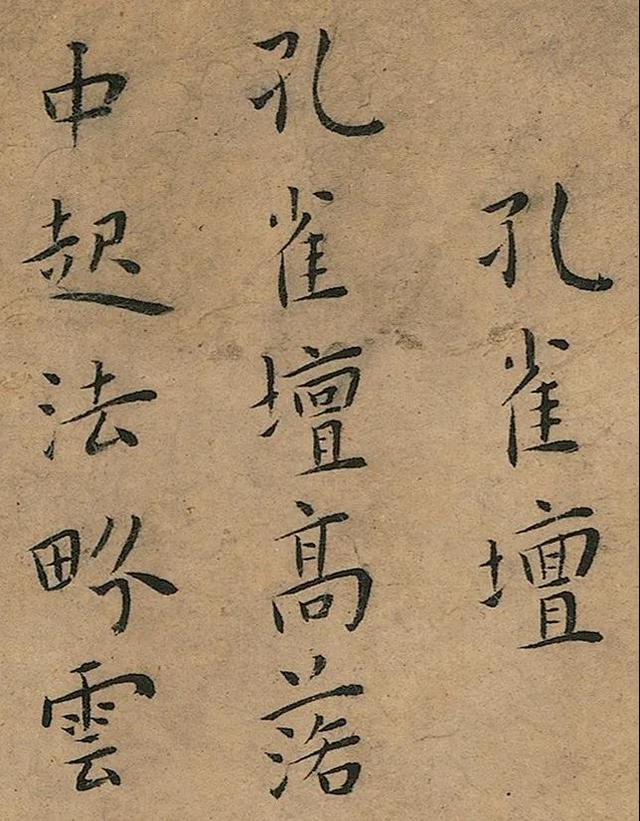 孔雀壇
孔雀壇髙落
中起法畍雲